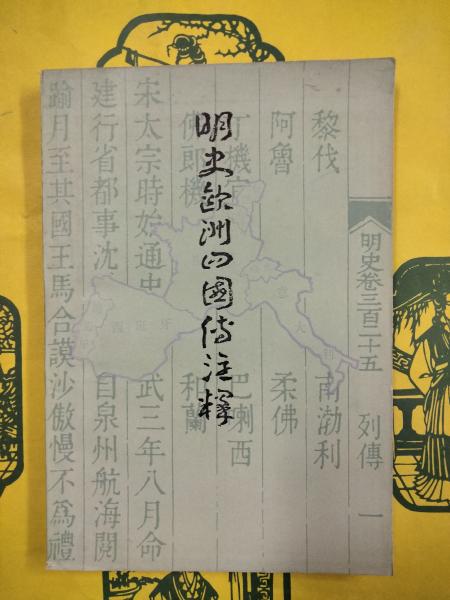 明史歐洲四國傳注釋
明史卷三百二十五 列傳 一
黎伐 南渤利
阿魯 柔佛
丁機宜 巴喇西
佛郎機 和蘭
宋太宗時始通中 武三年八月命
建行省都事沈 自泉州航海閱
踰月至其國王馬合謨沙傲慢不爲禮
西班牙
意大利